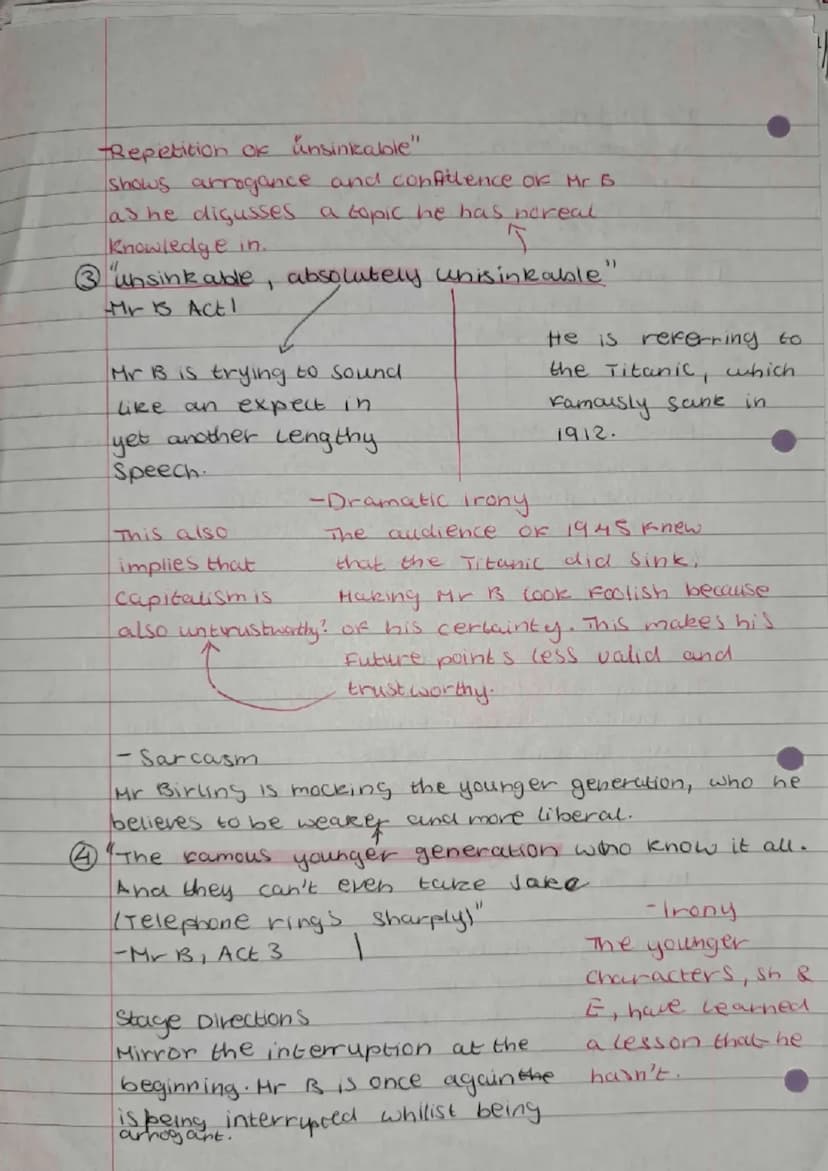 -Repetition of "unsinkable"
shows arrogance and confidence of Mr B
as he digusses a topic he has no real
knowledge in.
③ "unsinkable, absolutely unisinkable"
-Mr B Act 1
Mr B is trying to sound
like an expect in
yet another lengthy
speech.
He is referring to
the Titanic, which
famously sank in
1912.
-Dramatic irony
The audience of 1945 knew
that the Titanic did sink.
Making Mr B look foolish because
of his certainty. This makes his
future points less valid and
trustworthy.
This also
implies that
capitalism is
also untrustworthy?
- Sarcasm
Mr Birling is mocking the younger generation, who he
believes to be weaker and more liberal.
④ "The famous younger generation who know it all.
And they can't even take joke
(Telephone rings sharply)"
-Mr B, Act 3
Stage Directions
Mirror the interruption at the
beginning. Mr B is once again the
is being interrupted whilist being
arrogant.
-Irony
The younger
characters, Sh &
E, have learned
a lesson that he
hasn't.